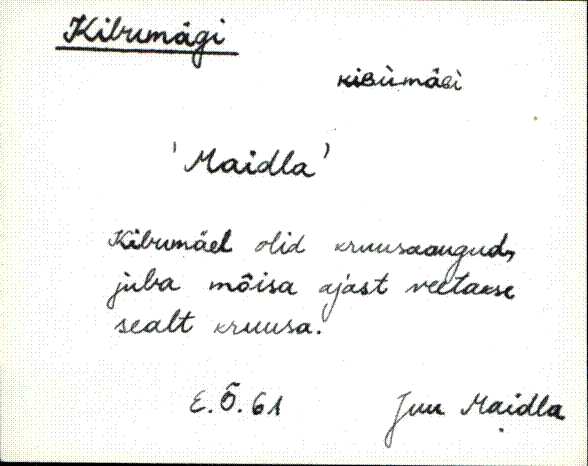 Kibumägi
KIBÙMÄGI
'Maidla'
Kibumäel olid kruusaaugud,
juba mõisa ajast veetakse
sealt kruusa.
E.Õ.61 Juu Maidla